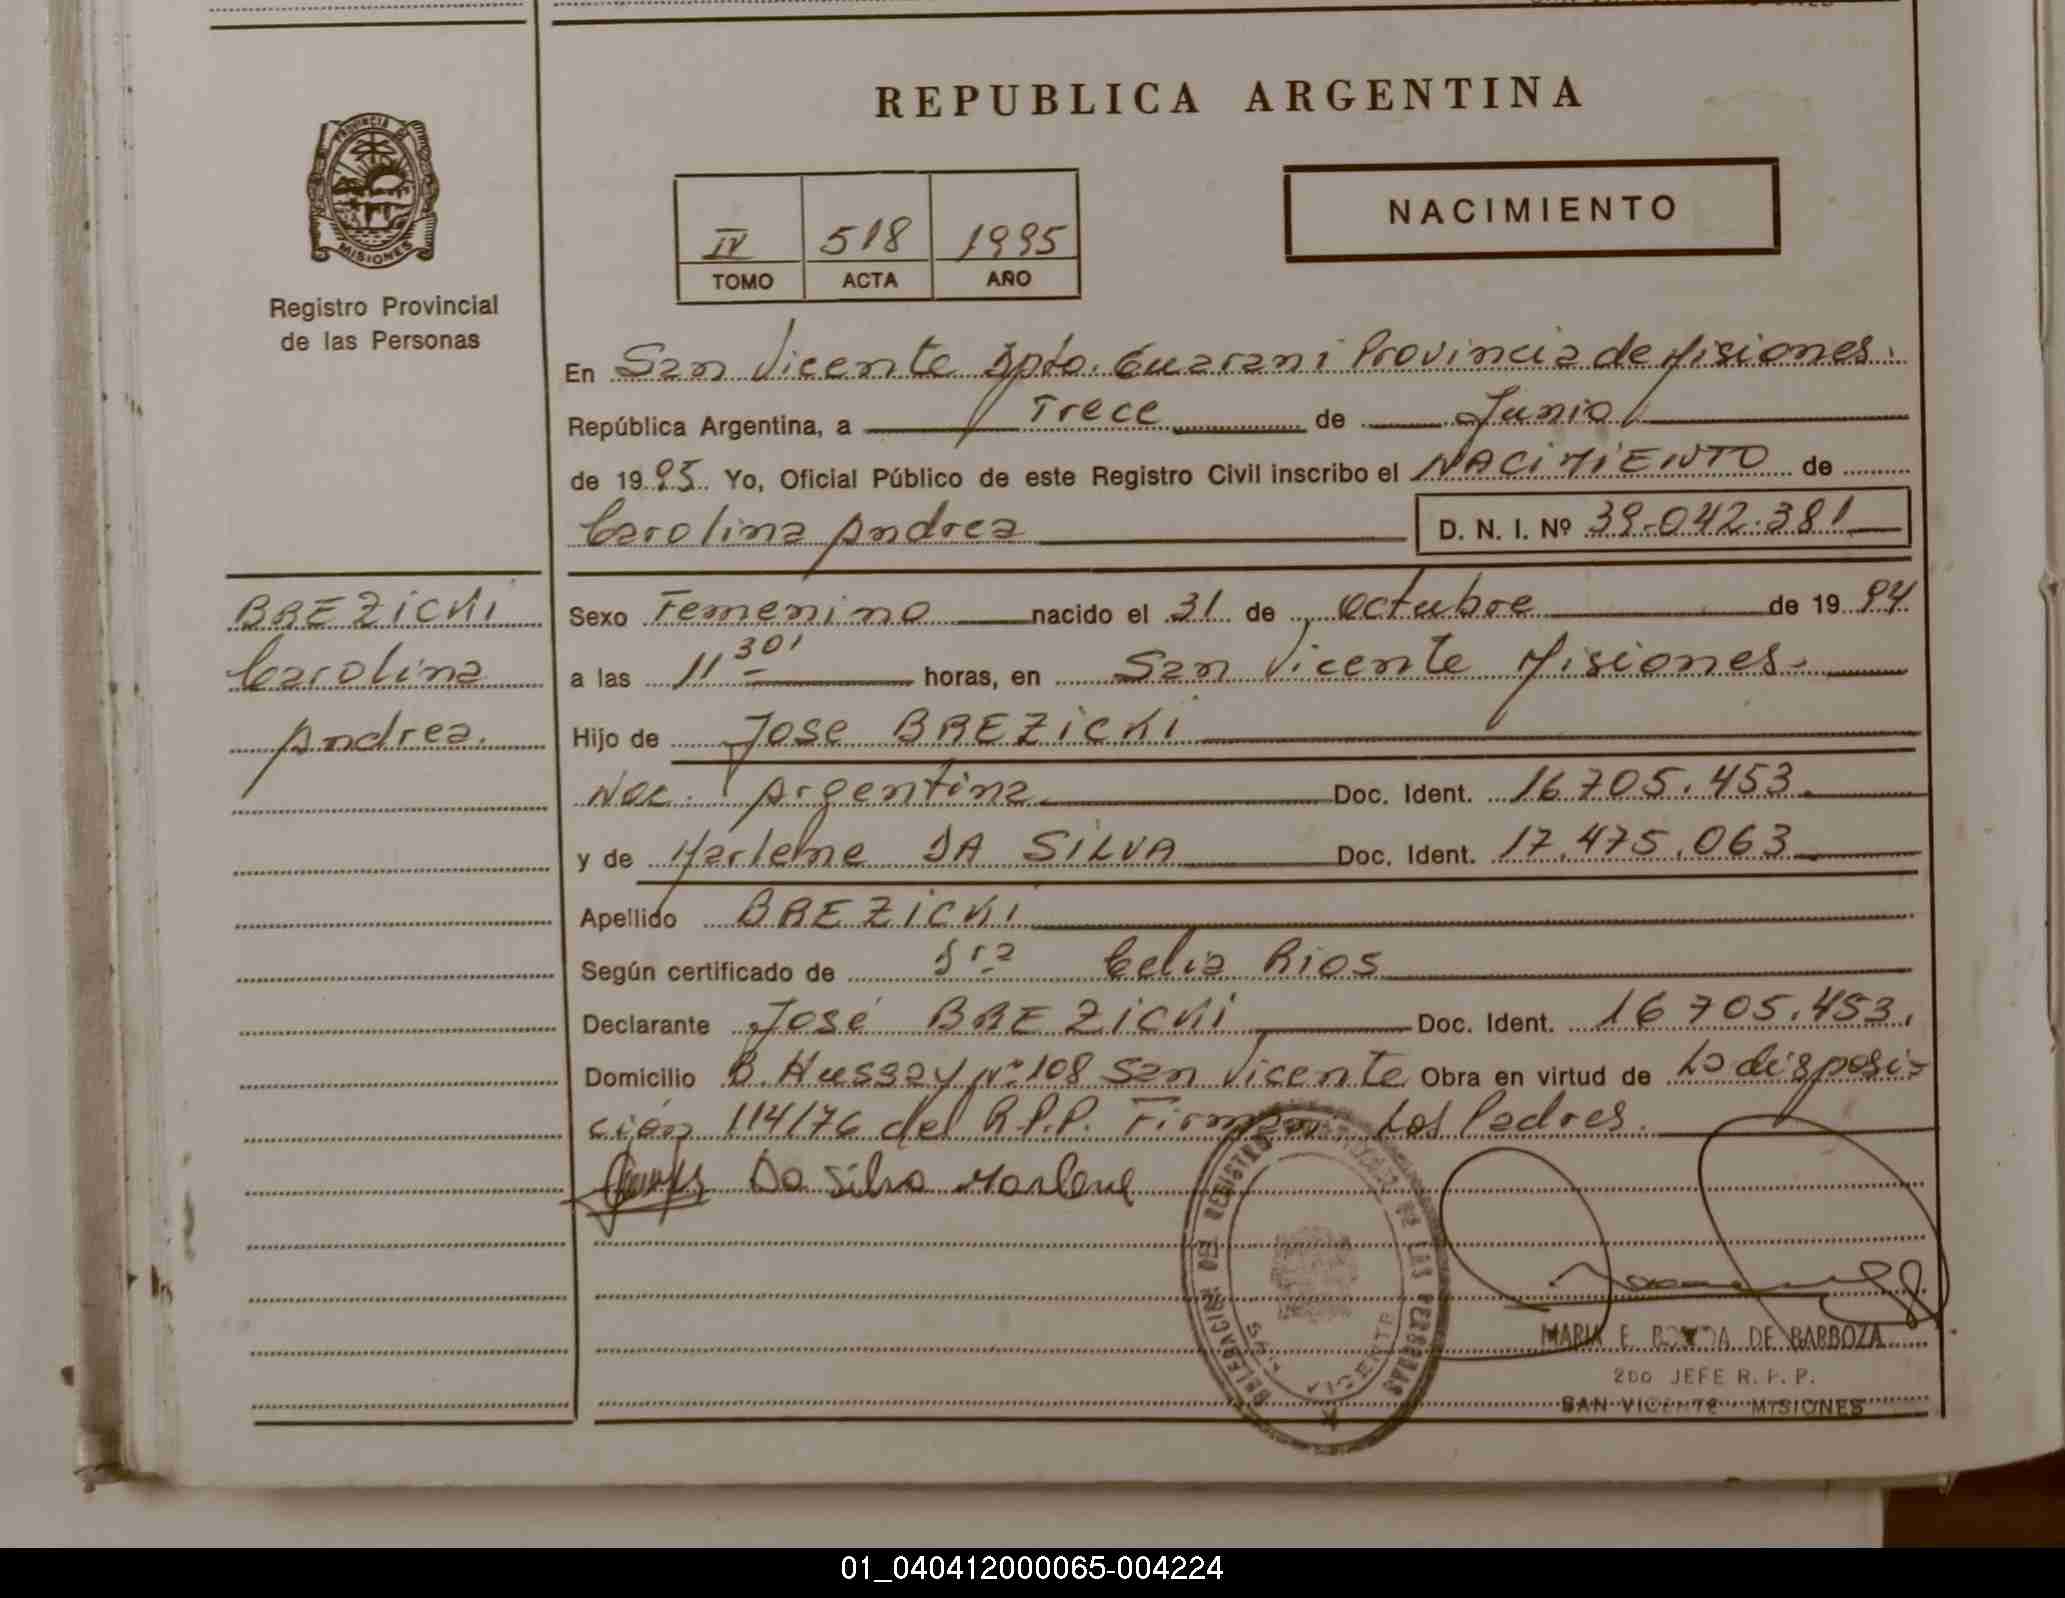 REPUBLICA ARGENTINA
PROVINCIA DE
MISIONES
Registro Provincial
de las Personas
IV 518 1995
TOMO ACTA AÑO
NACIMIENTO
En San Vicente Dpto. Guarani Provincia de Misiones.
República Argentina, a Trece de Junio
de 1995 Yo, Oficial Público de este Registro Civil inscribo el NACIMIENTO de
Carolina Andrea D. N. I. Nº 39.042.381
BREZICKI
Carolina
Andrea.
Sexo Femenino nacido el 31 de octubre de 1994
a las 11 30' horas, en San Vicente Misiones.
Hijo de Jose BREZICKI
Nac. Argentina Doc. Ident. 16705.453.
y de Marlene DA SILVA Doc. Ident. 17.475.063
Apellido BREZICKI
Según certificado de Dra Celia Rios
Declarante José BREZICKI Doc. Ident. 16705.453.
Domicilio B. Hussay Nº 108 San Vicente Obra en virtud de La disposi-
ción 114/76 del R.P.P. Firman Los Padres.
Da Silva Marlene
DELEGACION DEL REGISTRO DE LAS PERSONAS
SAN VICENTE
MARIA E. DE BARBOZA
2DO JEFE R. P. P.
SAN VICENTE - MISIONES
01_040412000065-004224